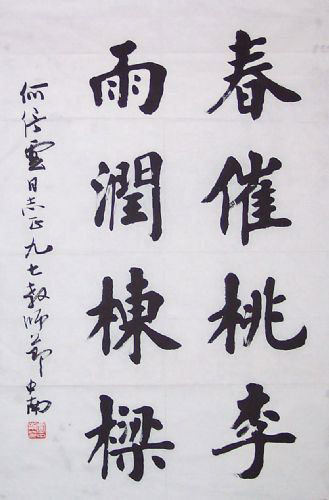 春催桃李
雨润棟樑
何倍雲同志正九七教師節中南